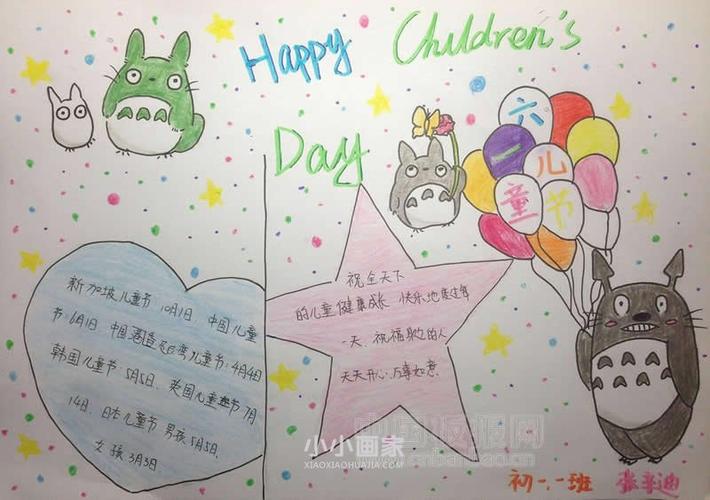 Happy Children's
Day
六一
儿
童节
新加坡儿童节 10月1日 中国儿童
节:6月1日 中国
儿童节:4月4日
韩国儿童节:5月5日、英国儿童节7月
14日、日本儿童节 男孩5月5日、
女孩3月3日
祝全天下
的儿童健康成长 快乐地度过每
一天、祝福
的人
天天开心,万事如意
小小画家
XIAOXIAOHUAJIA.COM
初一.一班